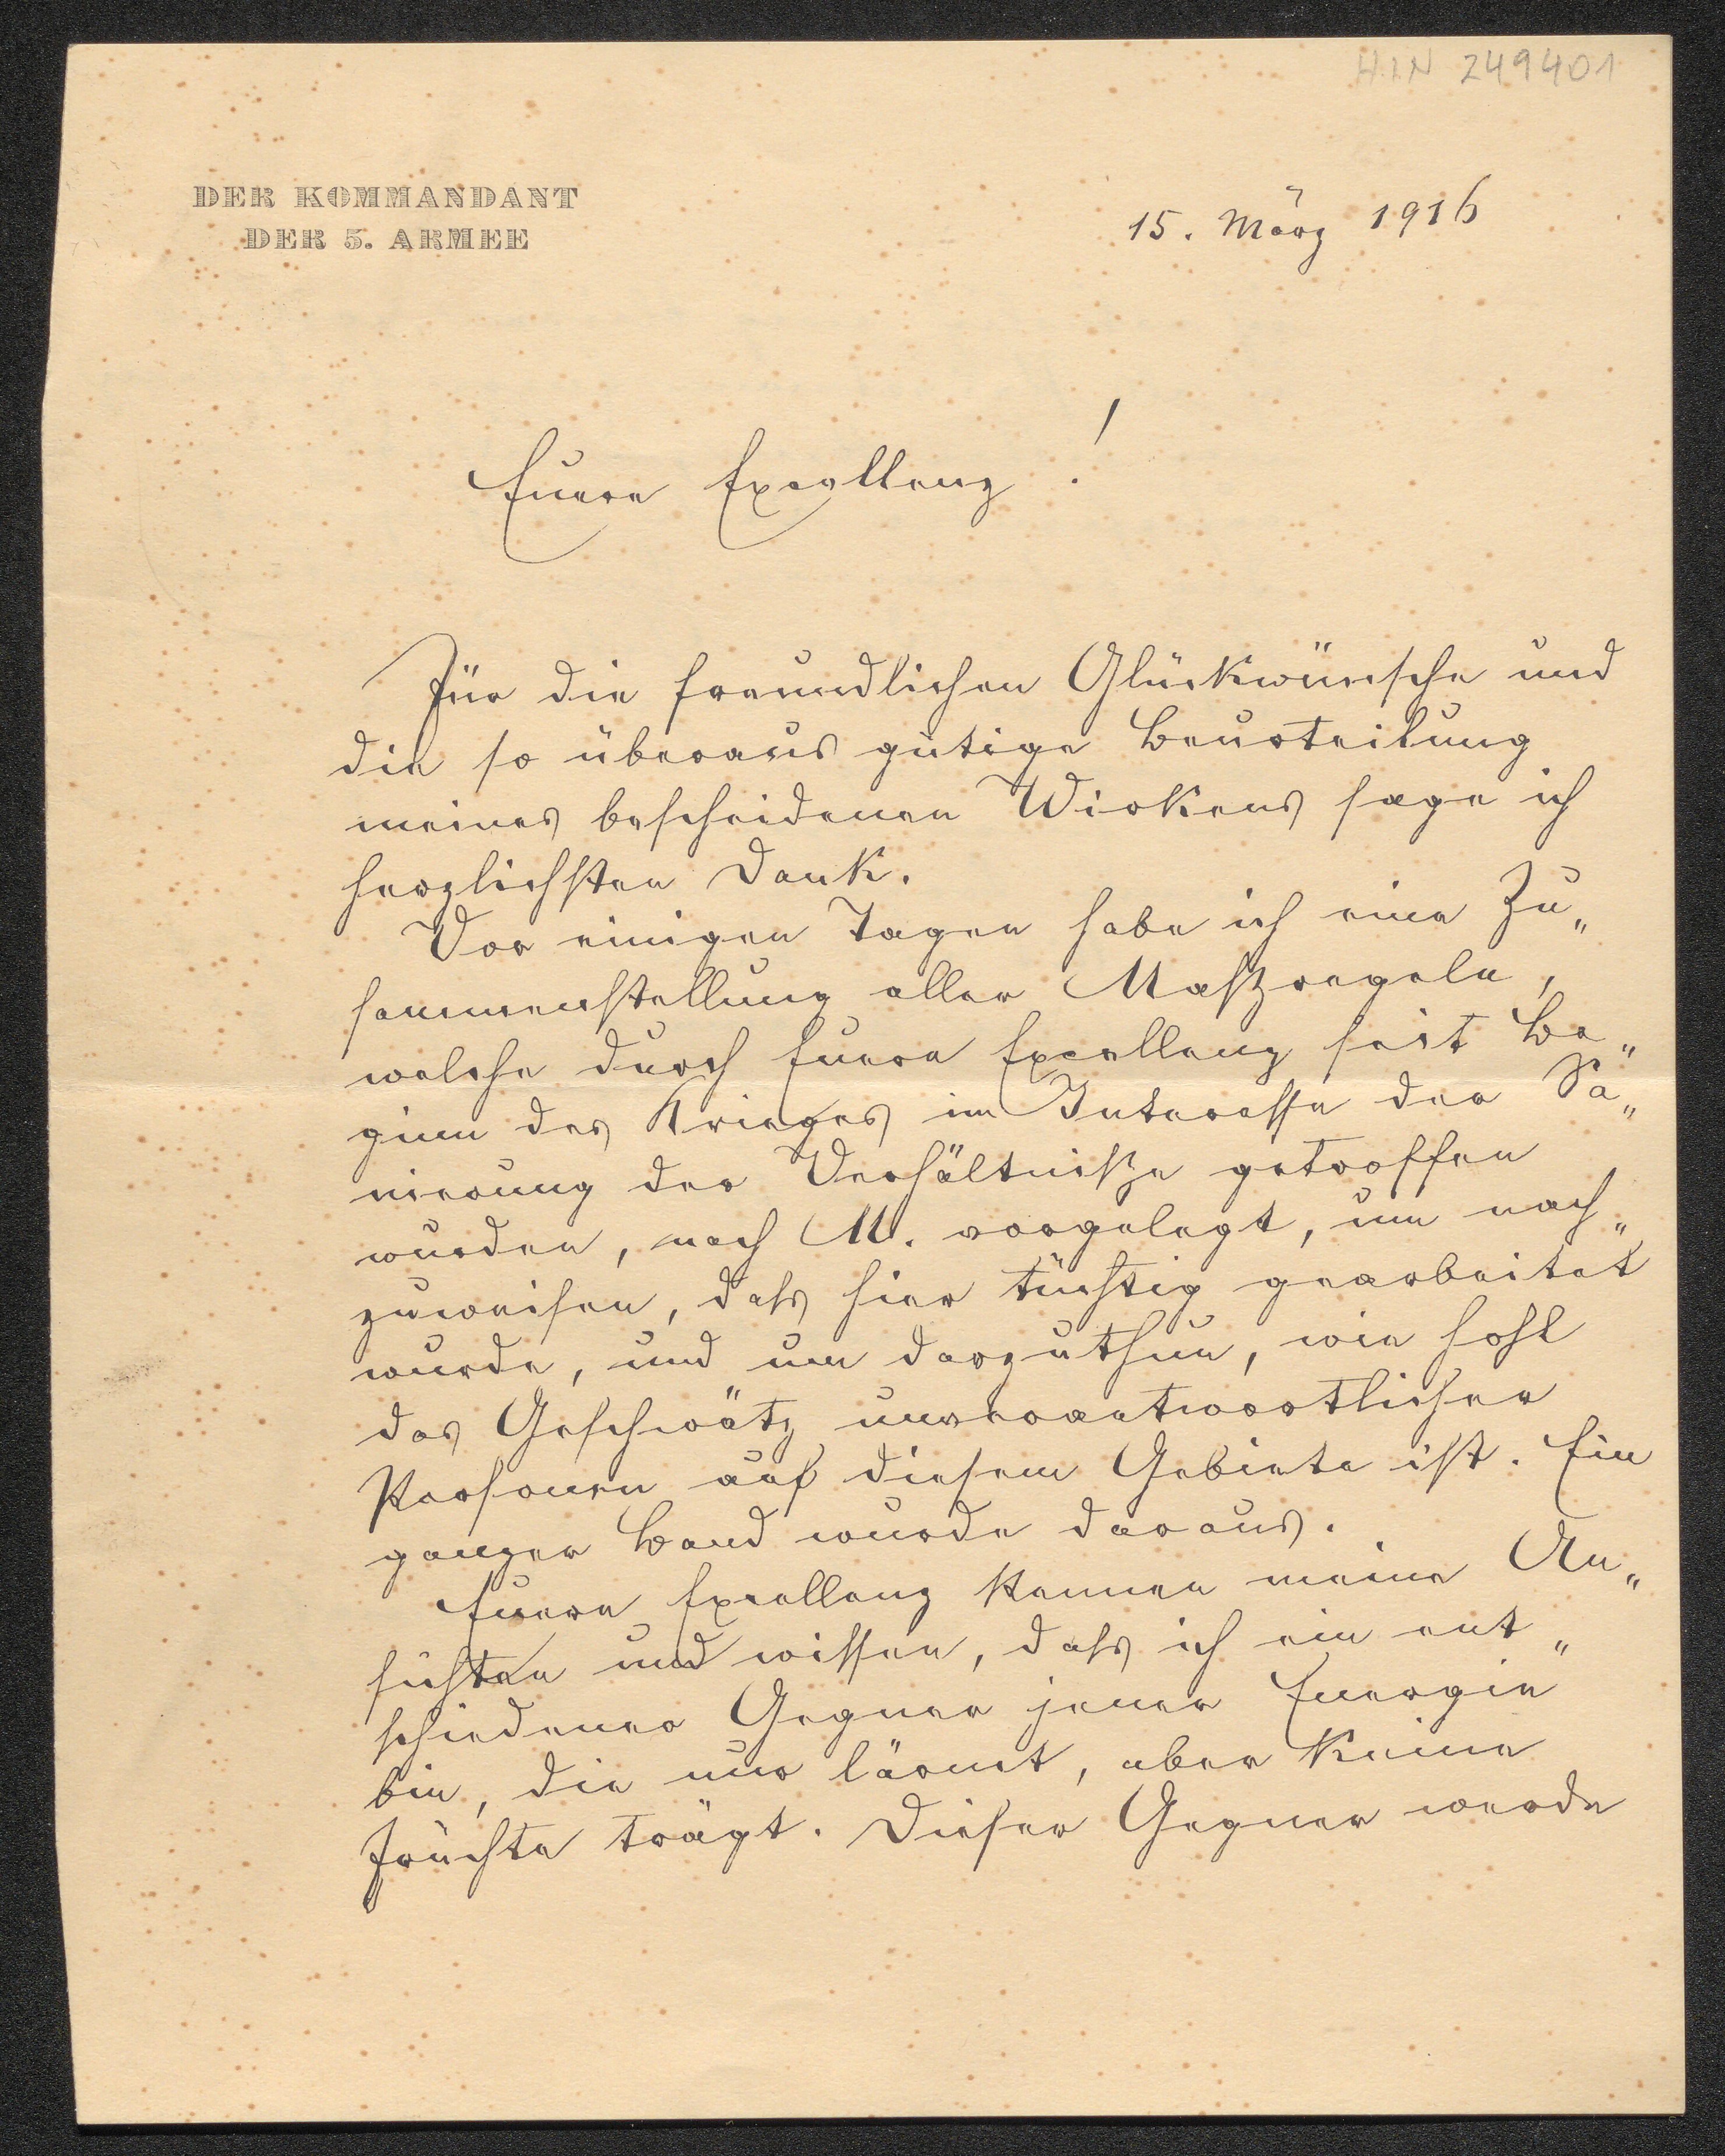 H.I.N 249401
DER KOMMANDANT
DER 5. ARMEE
15. März 1916
Euere Excellenz!
Für die freundlichen Glückwünsche und
die so überaus gütige Beurteilung
meines bescheidenen Wirkens sage ich
herzlichsten Dank.
Vor einigen Tagen habe ich eine Zu„
sammenstellung aller Maßregeln,
welche durch Euere Excellenz seit Be„
ginn des Krieges im Interesse der Sa„
nierung der Verhältniße getroffen
wurden, nach M. vorgelegt, um nach„
zuweisen, dass hier tüchtig gearbeitet
wurde, und um darzuthun, wie hohl
das Geschwätz unverantwortlicher
Personen auf diesem Gebiete ist. Ein
ganzer Band wurde daraus.
Euere Excellenz kennen meine An„
sichten und wissen, dass ich ein ent„
schiedener Gegner jener Energie
bin, die nur lärmt, aber keine
Früchte trägt. Dieser Gegner werde